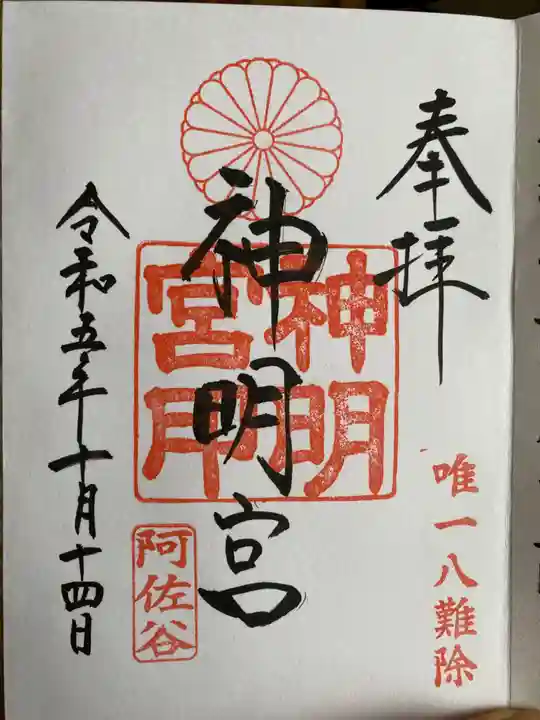 奉拝
唯一八難除
神明宮
神明宮印
阿佐谷
令和五年十月十四日